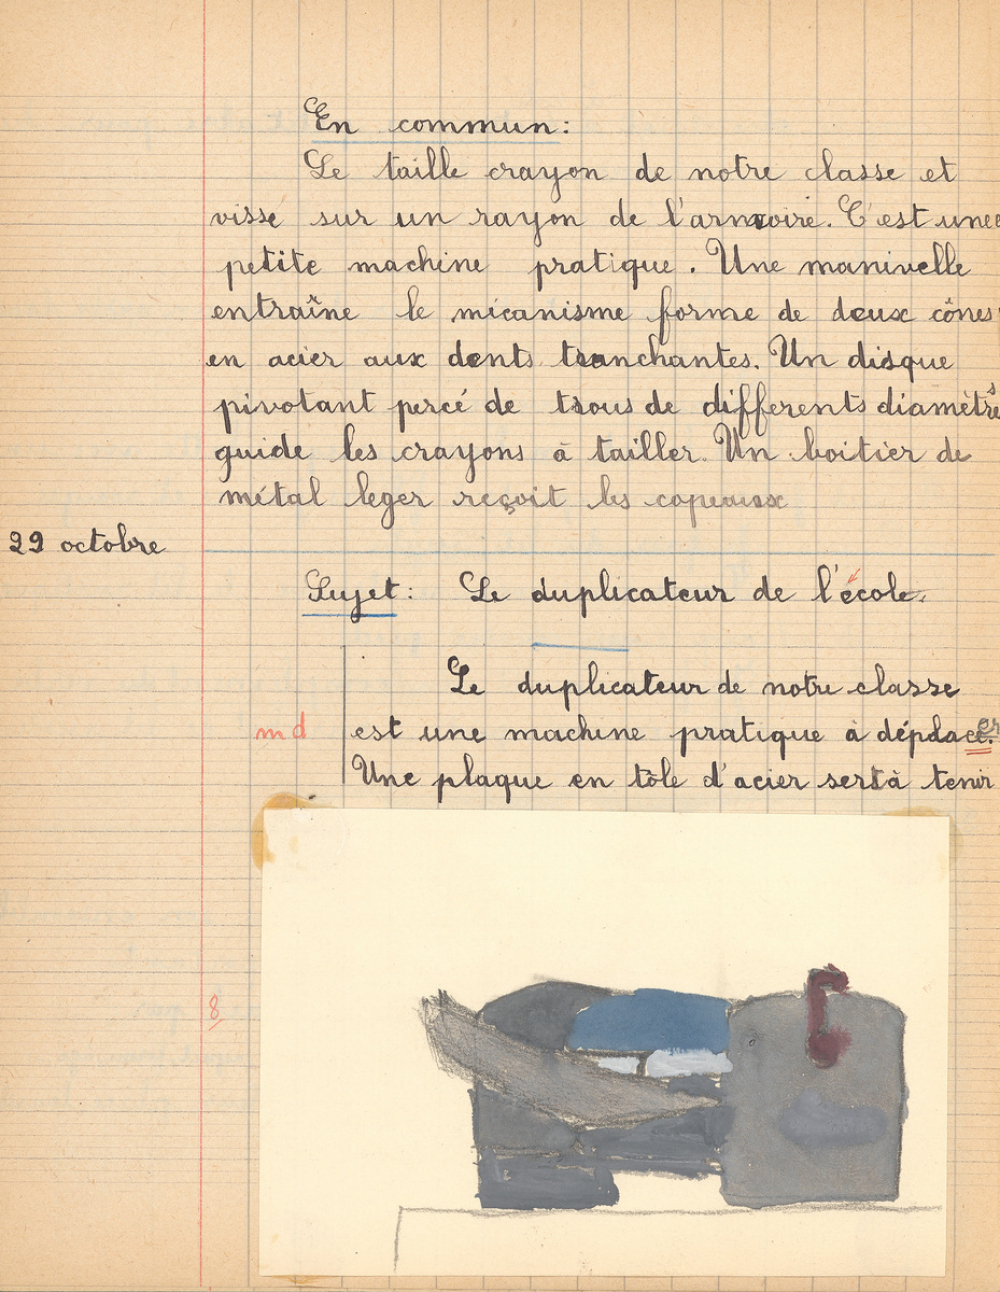 En commun:
Le taille crayon de notre classe et
visse sur un rayon de l'armoire. C'est une
petite machine pratique. Une manivelle
entraîne le mécanisme forme de deux cônes
en acier aux dents tranchantes. Un disque
pivotant percé de trous de differents diamètres
guide les crayons à tailler. Un boitier de
métal leger reçoit les copeaux
29 octobre
Sujet: Le duplicateur de l'école.
Le duplicateur de notre classe
md est une machine pratique à déplacer.
Une plaque en tôle d'acier sert à tenir
8